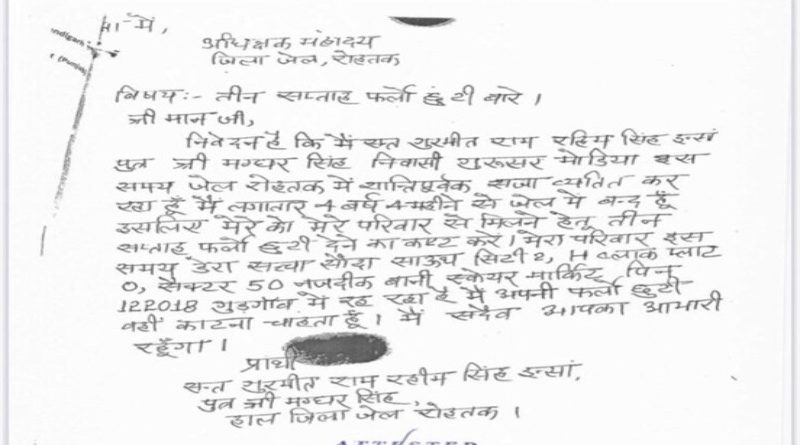 सेवा में,
ndigarh
(Punjab)
अधिक्षक महोदय
जिला जेल, रोहतक
विषय:- तीन सप्ताह फर्लो छुटी बारे ।
श्री मान जी,
निवेदन है कि मैं सन्त गुरमीत राम रहिम सिंह इन्सां
पुत्र श्री मग्घर सिंह निवासी गुरूसर मोडिया इस
समय जेल रोहतक में शान्तिपूर्वक सजा व्यतित कर
रहा हूँ मैं लगातार 4 वर्ष 4 महीने से जेल मे बन्द हूँ
इसलिए मेरे को मेरे परिवार से मिलने हेतू तीन
सप्ताह फर्लो छुटी देने का कष्ट करे । मेरा परिवार इस
समय डेरा सच्चा सौदा साऊथ सिटी 2, H ब्लाक प्लाट
0, सैक्टर 50 नजदीक बानी स्केयर मार्किट, पिन
122018 गुड़गाँव में रह रहा है मैं अपनी फर्लो छुटी
वहीं काटना चाहता हूँ । मैं सदैव आपका आभारी
रहूँगा ।
प्रार्थी
सन्त गुरमीत राम रहीम सिंह इन्सां,
पुत्र श्री मग्घर सिंह,
हाल जिला जेल रोहतक ।
ATTESTED